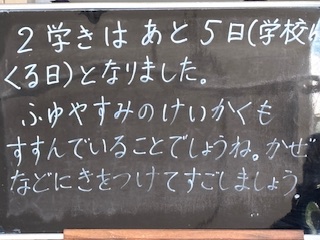 2学きは あと 5日(学校に
くる日)となりました。
ふゆやすみのけいかくも
すすんでいることでしょうね。かぜ
などにきをつけてすごしましょう。